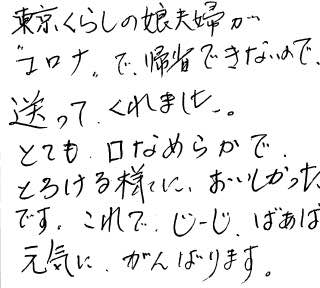 東京くらしの娘夫婦が
"コロナ"で、帰省できないので、
送って、くれました。
とても、口なめらかで、
とろける様に、おいしかった
です。これで、じーじ、ばぁば
元気に、がんばります。